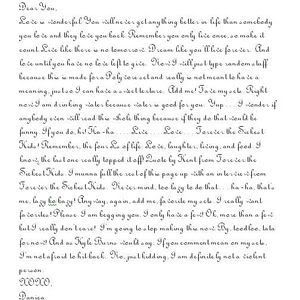 Dear You,
Love is wonderful. You will never get anything better in life than somebody
you love and they love you back. Remember you only live once, so make it
count. Live like there is no tomorrow. Dream like you'll live forever. And
love until you have no love left to give. Now I will just type random stuff
because this was made for a Polyvore set and really is not meant to have a
meaning, just so I can have a sweet texture. Add me! Fave my sets. Right
now I am drinking water because water is good for you. Yup. . . . I wonder if
anybody even will read this whole thing because if they do that would be
funny. If you do, hi! Ha-ha . . . . Live . . . Love . . . Forever the Sickest
Kids! Remember, the four Ls of life. Love, laughter, living, and food. I
know, the last one really topped it off! Quote by Kent from Forever the
Sickest Kids. I wanna fill the rest of this page up with an interview from
Forever the Sickest Kids. Never mind, too lazy to do that. . . ha-ha, that's
me, lazy ho lazy! Anyway, again, add me, favorite my sets. I really want
favorites! Please. I am begging you. I only have a few! Ok, more than a few
but I really don't care! I'm going to stop making this now. By, toodloo, tata
for now! And as Kyle Burns would say. If you comment mean on my sets,
I'm not afraid to hit back. No, just kidding, I am definitely not a violent
person.
XOXO,
Danisa